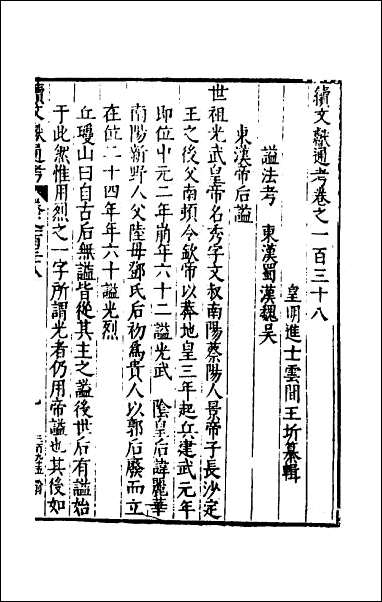 續文獻通考卷之一百三十八
皇明進士雲間王圻纂輯
諡法考　東漢蜀漢魏吳
東漢帝后諡
世祖光武皇帝名秀字文叔南陽蔡陽人景帝子長沙定
王之後父南頓令欽帝以莽地皇三年起兵建武元年
即位中元二年崩年六十二諡光武　陰皇后諱麗華
南陽新野人父陸母鄧氏后初為貴人以郭后廢而立
在位二十四年年六十諡光烈
丘瓊山曰自古后無諡皆從其主之諡後世后有諡始
于此然惟用烈之一字所謂光者仍用帝諡也其後如
續文獻通考